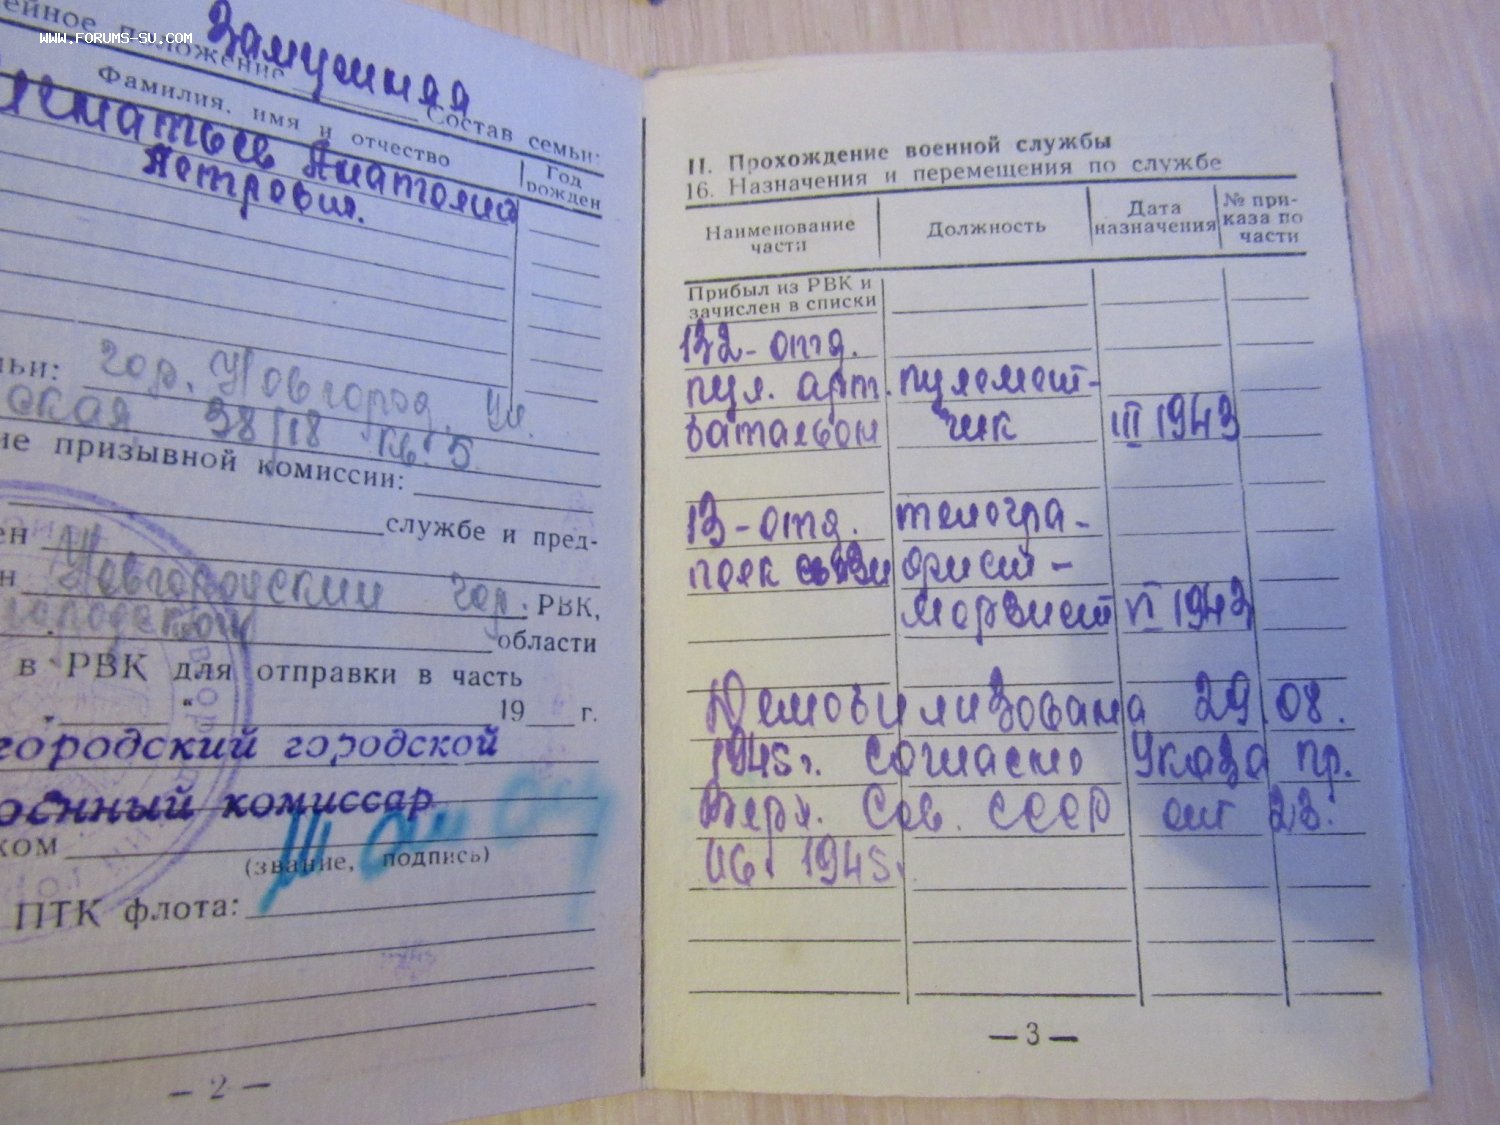 www.forums-su.com
ейное положение Замужняя
Состав семьи:
Фамилия, имя и отчество
Год рожден
Анатолий
Петрович.
ьи: гор. Новгород, ул.
ская 38/18 кв. 5
ие призывной комиссии:
службе и пред-
ен
н Новгородский гор. РВК,
городской
области
в РВК для отправки в часть
" 19 г.
городский городской
оенный комиссар
ком
(звание, подпись)
ПТК флота:
— 2 —
II. Прохождение военной службы
16. Назначения и перемещения по службе
Наименование части
Должность
Дата назначения
№ при-каза по части
Прибыл из РВК и
зачислен в списки
132-отд.
пул. арт. пулемет-
батальон чик III 1943
13-отд. телегра-
полк связи фист-
морзист VI 1943
Демобилизована 29.08.
1945г. согласно Указа пр.
Верх. Сов. СССР от 23.
06. 1945.
— 3 —